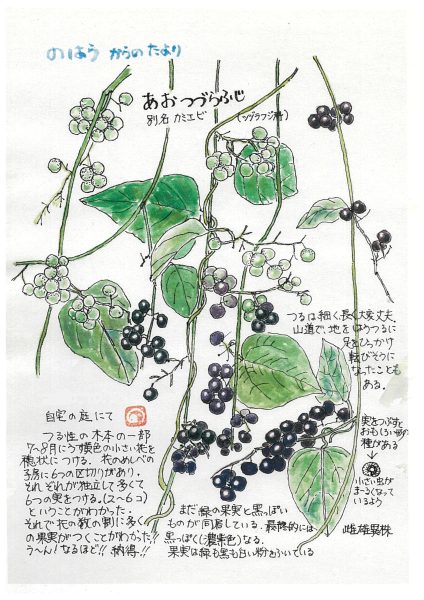 のはらからのたより
あおつづらふじ
別名 カミエビ (ツヅラフジ科)
つるは細く、長く大変丈夫。
山道で、地をはうつるに
足をひっかけ
転びそうに
なったことも
ある。
実をつぶすと
おもしろい形の
種がある
小さい虫が
まるくなって
いるよう
雌雄異株
自宅の庭にて
つる性の木本の一部
7〜8月にうす黄色の小さい花を
穂状につける。花のめしべの
子房に6つの区切りがあり、
それぞれが独立して多くて
6つの実をつける。(2〜6コ)
ということがわかった。
それで花の数の割に多く
の果実がつくことがわかった!!
う〜ん!なるほど!! 納得!!
まだ緑の果実と黒っぽい
ものが同居している。最終的には
黒っぽく(濃紫色)なる。
果実は緑も黒も白い粉をふいている